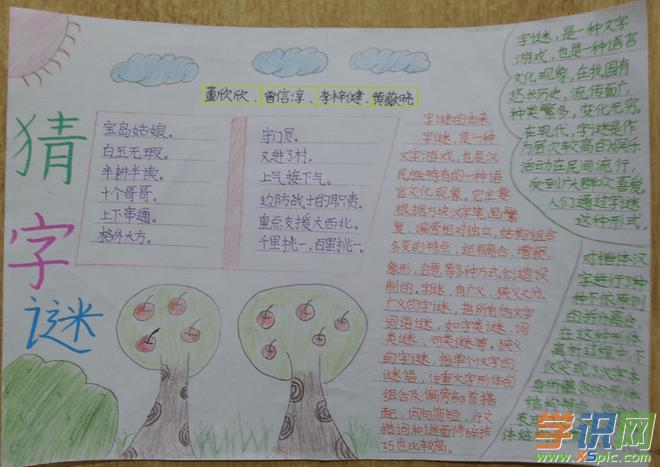 猜字谜
董欣欣、曾信淳、李梓健、黄薇晓
宝岛姑娘。
白玉无瑕。
半耕半读。
十个哥哥。
上下串通。
格外大方。
字门页。
又进了村。
上气接下气。
边防战士的职责。
重点支援大西北。
千里挑一，百里挑一。
字谜的由来
字谜，是一种
文字游戏，也是汉
民族特有的一种语
言文化现象。它主要
根据方块汉字笔画繁
复、偏旁相对独立，结构组合
多变的特点，运用离合、增损、
象形、会意等多种方式创造设
制的。字谜，有广义、狭义之分。
广义的字谜，指所有的文字
词语谜，如字类谜、词
类谜、句类谜等。狭义
的字谜，指单个汉字的
谜语，注重文字形体的
组合及偏旁部首搭
配，词句简短，行文
措词和谜面修辞技
巧也比较高。
字谜，是一种文字
游戏，也是一种语言
文化现象，在我国有
悠长历史，流传面广，
种类繁多，变化无穷。
在现代，字谜是作
为层次较高的娱乐
活动在民间流行，
受到广大群众喜爱。
人们通过字谜
这种形式。
对楷体汉
字进行多种
种不依原则
的拆分离合
在这种形体
离析过程中，不
仅表现了汉字本
学识网
www.XSpic.com